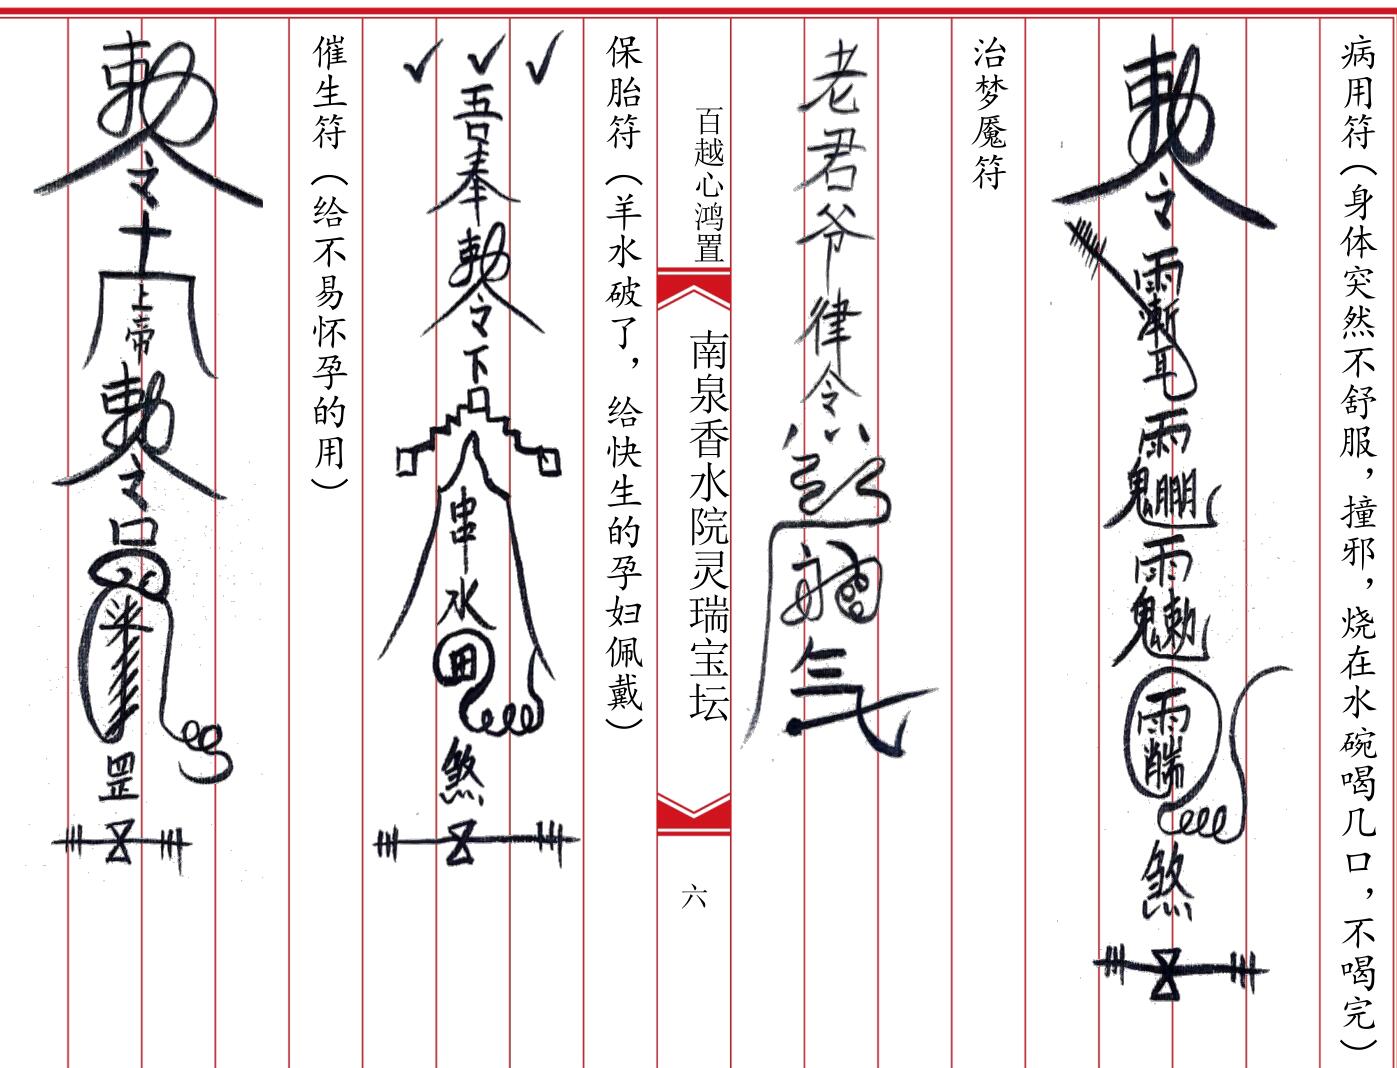 病用符（身体突然不舒服，撞邪，烧在水碗喝几口，不喝完）
敕令
煞
治梦魇符
老君爷律令
气
百越心鸿置
南泉香水院灵瑞宝坛
六
保胎符（羊水破了，给快生的孕妇佩戴）
吾奉敕令下
串水
田
煞
催生符（给不易怀孕的用）
敕令
上帝
敕令
罡